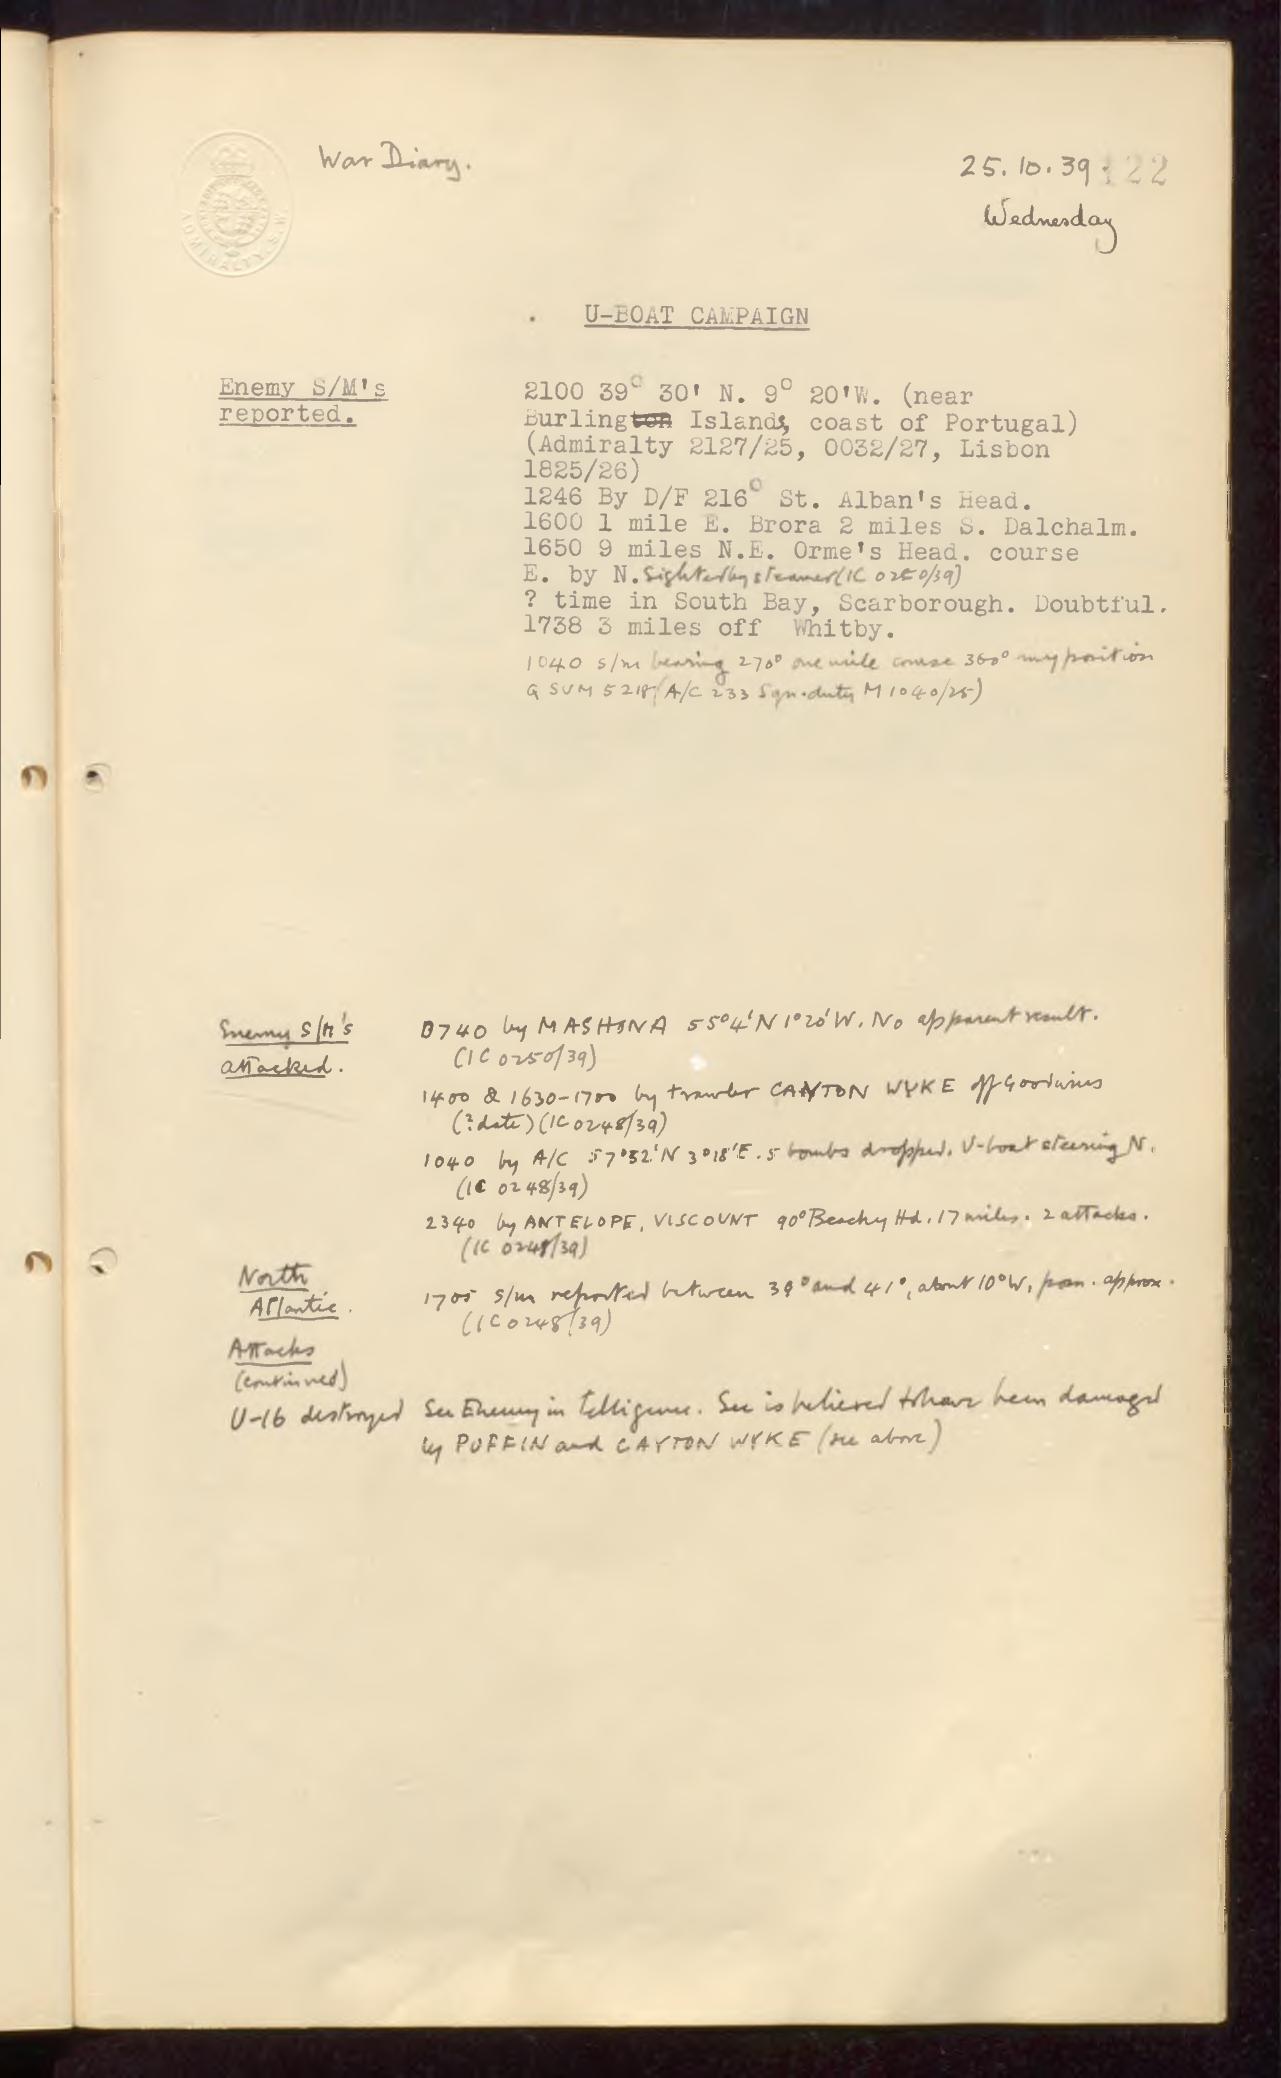 War Diary.
25.10.39 122
Wednesday
ADMIRALTY. S.W.
U-BOAT CAMPAIGN
Enemy S/M's
reported.
2100 39° 30' N. 9° 20'W. (near
Burlington Islands, coast of Portugal)
(Admiralty 2127/25, 0032/27, Lisbon
1825/26)
1246 By D/F 216° St. Alban's Head.
1600 1 mile E. Brora 2 miles S. Dalchalm.
1650 9 miles N.E. Orme's Head. course
E. by N. Sighted by steamer (IC 0250/39)
? time in South Bay, Scarborough. Doubtful.
1738 3 miles off Whitby.
1040 s/m bearing 270° one mile course 360° my position
SVM 5218 (A/C 233 Sqn. duty M 1040/25)
Enemy S/M's
attacked.
0740 by MASHONA 55°4'N 1°20'W. No apparent result.
(IC 0250/39)
1400 & 1630-1700 by trawler CAYTON WYKE off Goodwins
(? date) (IC 0248/39)
1040 by A/C 57°52'N 3°18'E. 5 bombs dropped. U-boat steering N.
(IC 0248/39)
2340 by ANTELOPE, VISCOUNT 90° Beachy Hd. 17 miles. 2 attacks.
(IC 0248/39)
North
Atlantic.
1705 s/m reported between 39° and 41°, about 10°W, posn. approx.
(IC 0248/39)
Attacks
(continued)
U-16 destroyed See Enemy intelligence. She is believed to have been damaged
by PUFFIN and CAYTON WYKE (see above)